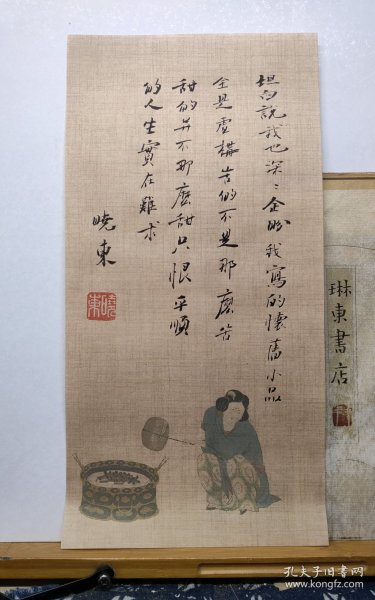 坦白說我也深〻企盼我寫的懷舊小品
全是虛構苦的不是那麼苦
甜的并不那麼甜只恨平順
的人生實在難求
曉東
曉東
琳東書店
孔夫子旧书网
www.kongfz.com